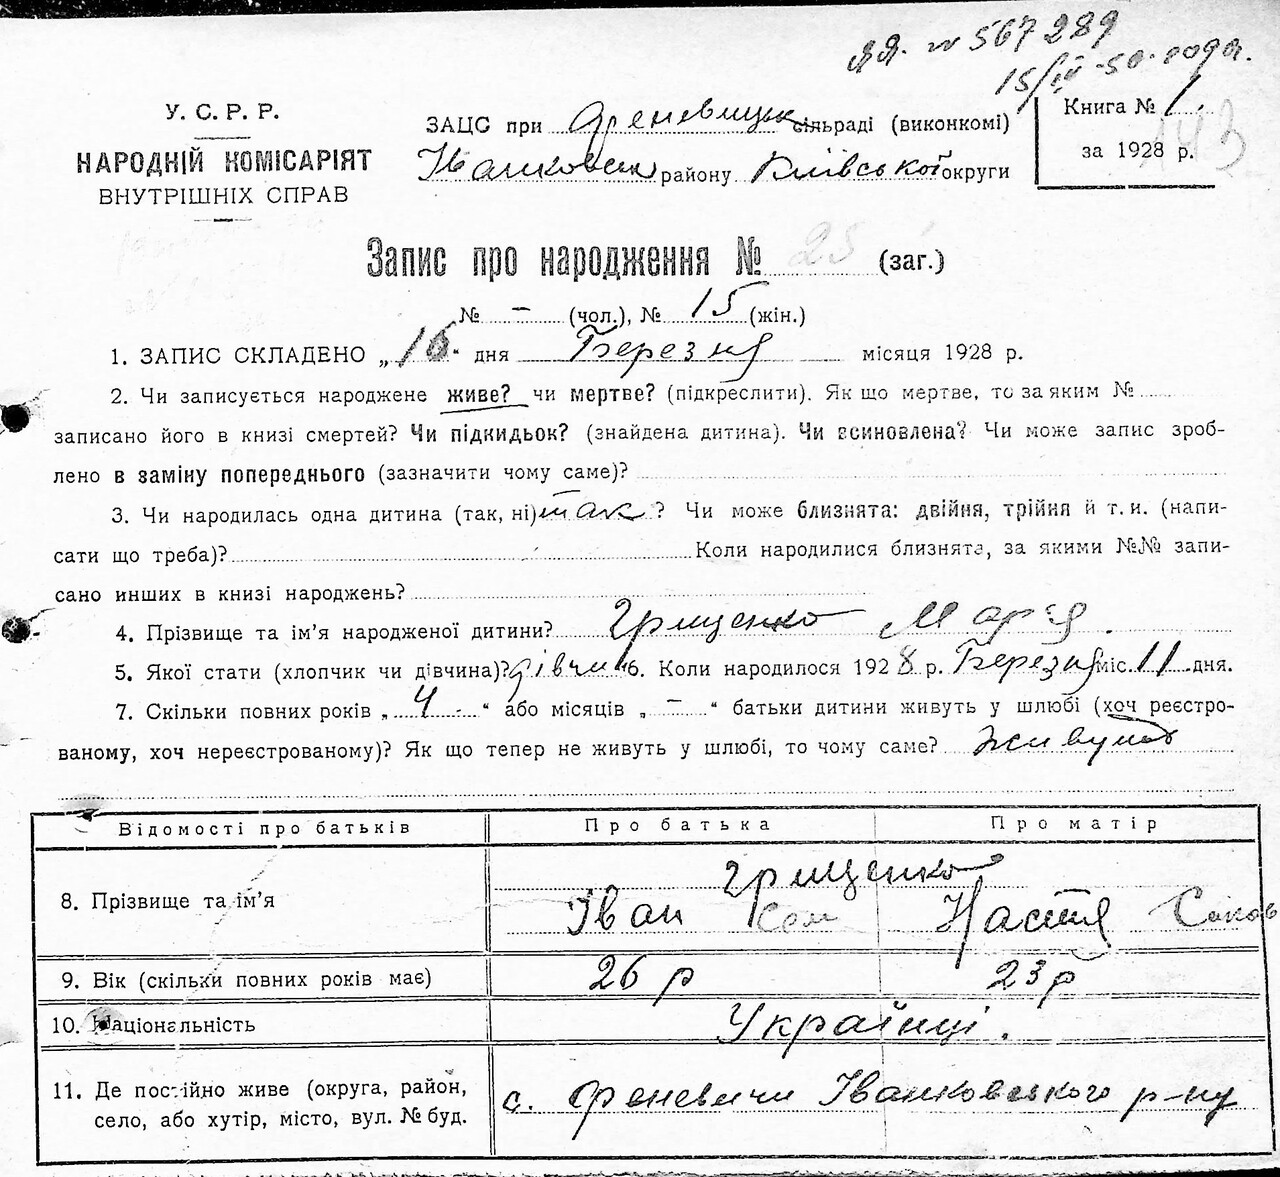 яя. № 567289
15/III-50 года.
У. С. Р. Р.
НАРОДНІЙ КОМІСАРІЯТ
ВНУТРІШНІХ СПРАВ
ЗАЦС при Феневицьк сільраді (виконкомі)
Іванковськ району Київської округи
Книга № 1
за 1928 р.
143
Запис про народження № 25 (заг.)
№ — (чол.), № 15 (жін.)
1. ЗАПИС СКЛАДЕНО „16“ дня Березня місяця 1928 р.
2. Чи записується народжене живе? чи мертве? (підкреслити). Як що мертве, то за яким №
записано його в книзі смертей? Чи підкидьок? (знайдена дитина). Чи всиновлена? Чи може запис зроб-
лено в заміну попереднього (зазначити чому саме)?
3. Чи народилась одна дитина (так, ні) так ? Чи може близнята: двійня, трійня й т. и. (напи-
сати що треба)? Коли народилися близнята, за якими №№ запи-
сано инших в книзі народжень?
4. Прізвище та ім’я народженої дитини? Грищенко Марія.
5. Якої стати (хлопчик чи дівчина)? дівчин 6. Коли народилося 1928 р. Березня міс. 11 дня.
7. Скільки повних років „ 4 - “ або місяців „ — “ батьки дитини живуть у шлюбі (хоч реєстро-
ваному, хоч нереєстрованому)? Як що тепер не живуть у шлюбі, то чому саме? живуть
Відомості про батьків Про батька Про матір
8. Прізвище та ім’я Грищенко
Іван Сем Настя Саков
9. Вік (скільки повних років має) 26 р 23 р
10. Національність Українці.
11. Де постійно живе (округа, район, село, або хутір, місто, вул. № буд. с. Феневичи Іванковського р-ну